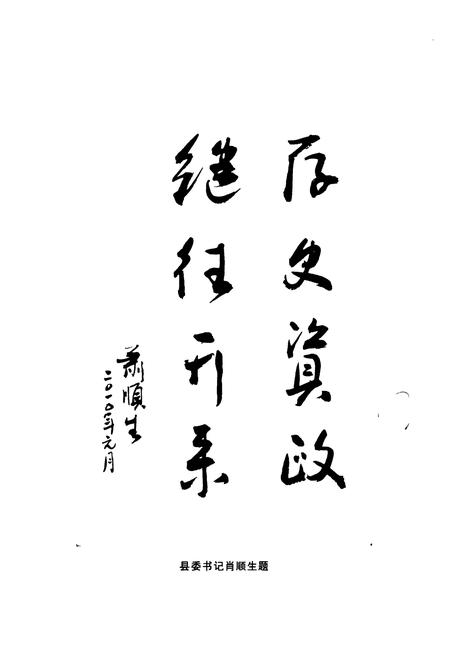 存史資政
继往开来
萧順生
二〇一〇年元月
县委书记肖顺生题